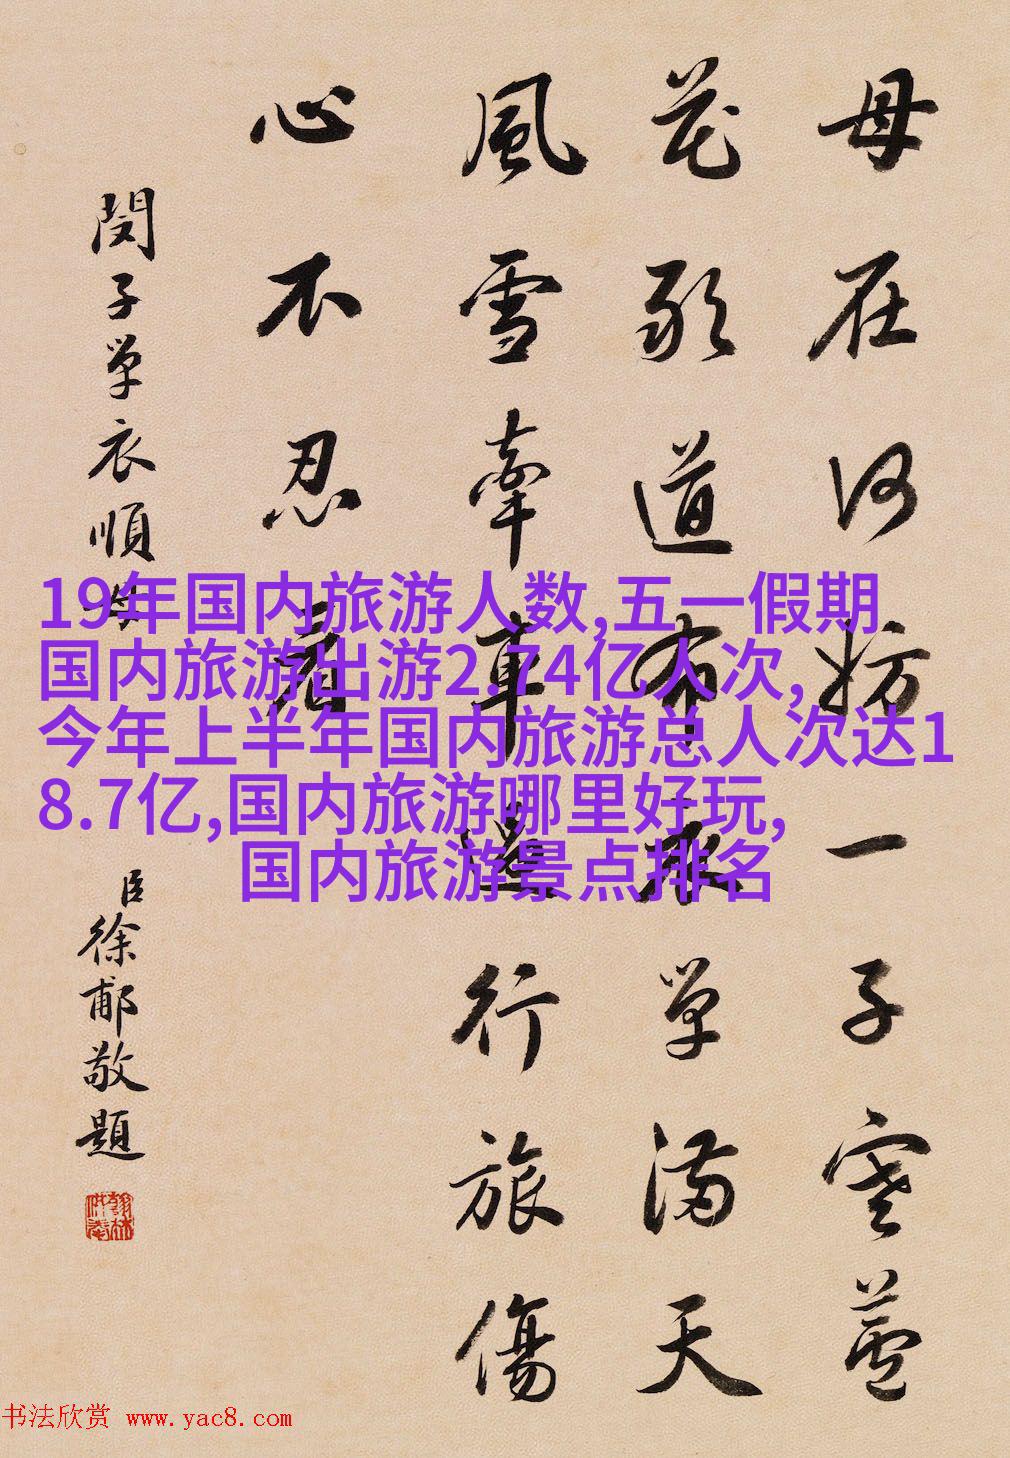 母在何妨一子寒蘆
花敢道布單滿天
風雪牽車還行旅傷
心不忍看
閔子單衣順母
臣徐郙敬題
19年国内旅游人数,五一假期
国内旅游出游2.74亿人次,
今年上半年国内旅游总人次达1
8.7亿,国内旅游哪里好玩,
国内旅游景点排名
书法欣赏 www.yac8.com